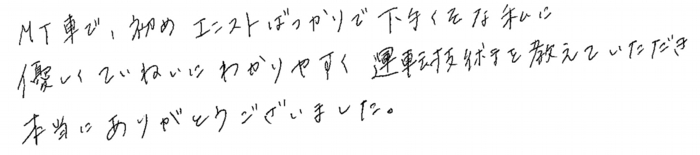 MT車で、初め エンストばっかりで 下手くそな私に
優しくていねいに わかりやすく 運転技術を教えていただき
本当に ありがとうございました。